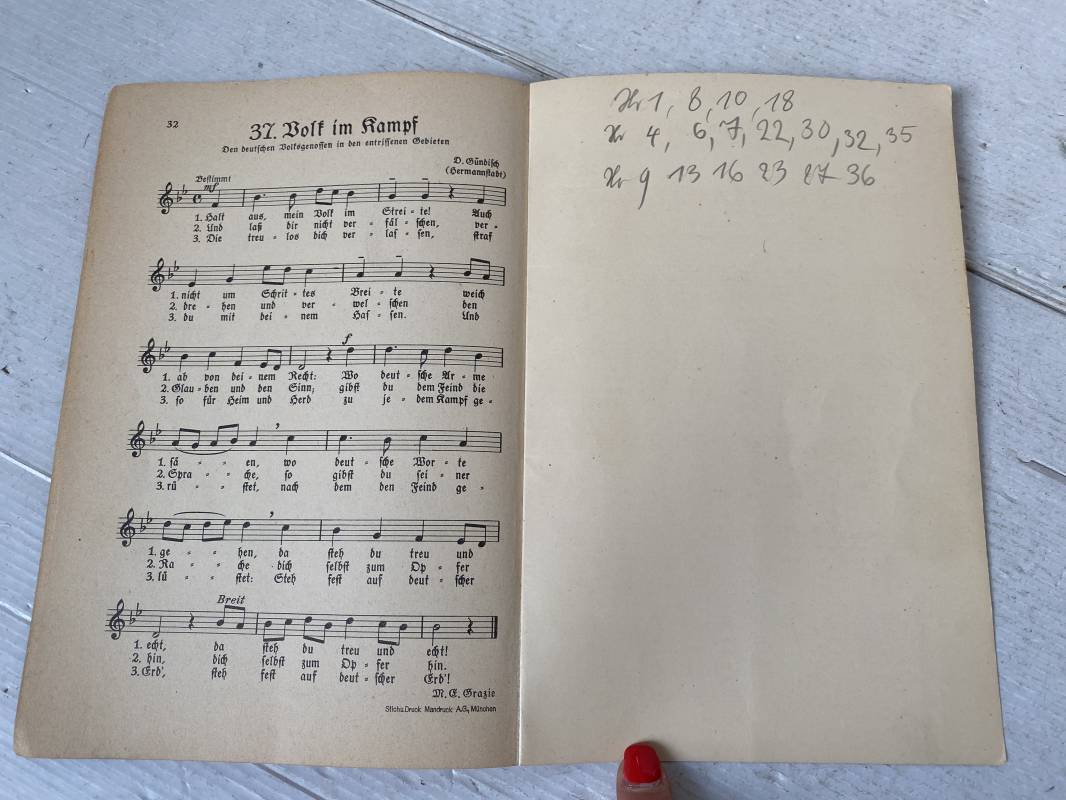 32
37. Volk im Kampf
Den deutschen Volksgenossen in den entrissenen Gebieten
D. Gündisch
(Hermannstadt)
Bestimmt
mf
1. Halt aus, mein Volk im Strei - te! Auch
2. Und laß dir nicht ver - fäl - schen, ver -
3. Die treu - los dich ver - las - sen, straf
1. nicht um Schrit - tes Brei - te weich
2. dre - hen und ver - wel - schen den
3. du mit dei - nem Has - sen. Und
f
1. ab von dei - nem Recht: Wo deut - sche Ar - me
2. Glau - ben und den Sinn; gibst du dem Feind die
3. so für Heim und Herd zu je - dem Kampf ge -
1. sä - - en, wo deut - sche Wor - te
2. Spra - - che, so gibst du sei - ner
3. rü - - stet, nach dem den Feind ge -
1. ge - - hen, da steh du treu und
2. Ra - - che dich selbst zum Op - fer
3. lü - - stet: Steh fest auf deut - scher
Breit
1. echt, da steh du treu und echt!
2. hin, dich selbst zum Op - fer hin.
3. Erd', steh fest auf deut - scher Erd'!
M. E. Grazie
Stich u. Druck Mandruck A.G., München
Nr 1, 8, 10, 18
Nr 4, 6, 7, 22, 30, 32, 35
Nr 9 13 16 23 27 36